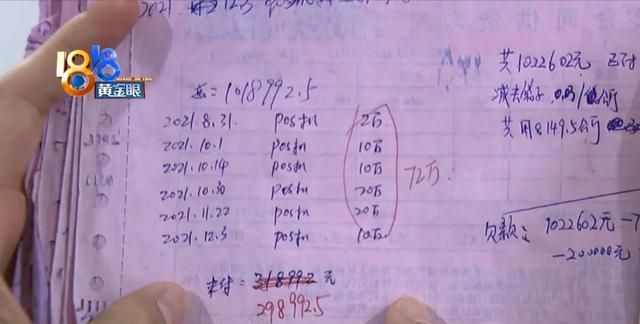 1818
黄金眼
共=1018992.5
2021.8.31. pos机 2万
2021.10.1 pos机 10万
2021.10.14 pos机 10万
2021.10.30 pos机 20万
2021.11.22 pos机 20万
2021.12.3 pos机 10万
72万.
未付=318992元
298992.5
共1022602元
减去
共用8149.5公斤
欠款: 1022602元-7
-200000元